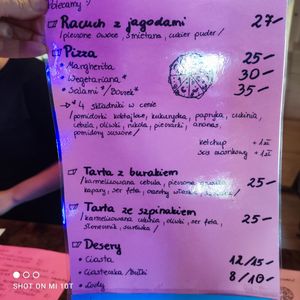 Polecamy :)
Racuch z jagodami 27-
/pieczone owoce, śmietana, cukier puder/
Pizza
• Margherita 25-
• Wegetariana* 30-
• Salami*/Boczek* 35-
* 4 składniki w cenie
/pomidorki koktajlowe, kukurydza, papryka, cukinia,
cebula, oliwki, rukola, pieczarki, ananas,
pomidory suszone/
ketchup + 1zł
sos czosnkowy + 1zł
Tarta z burakiem
/karmelizowana cebula, pieczona
kapary, ser feta, orzechy włoskie, 25-
Tarta ze szpinakiem
/karmelizowana cukinia, oliwki, ser feta, 25-
słonecznik, surówka/
Desery
• Ciasta 12/15-
• Ciasteczka/Bułki 8/10-
• Lody
SHOT ON MI 10T